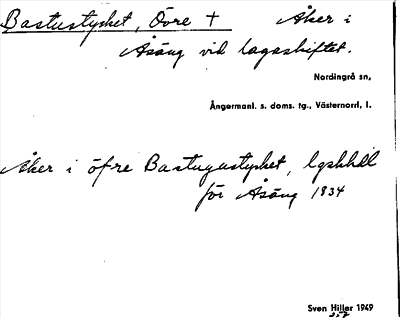 Bastustycket, Övre + Åker i
Åsäng vid lagaskiftet.
Nordingrå sn,
Ångermanl. s. doms. tg., Västernorrl, l.
Åker i öfre Bastugustycket, lgskhdl
för Åsäng 1834
Sven Hiller 1949